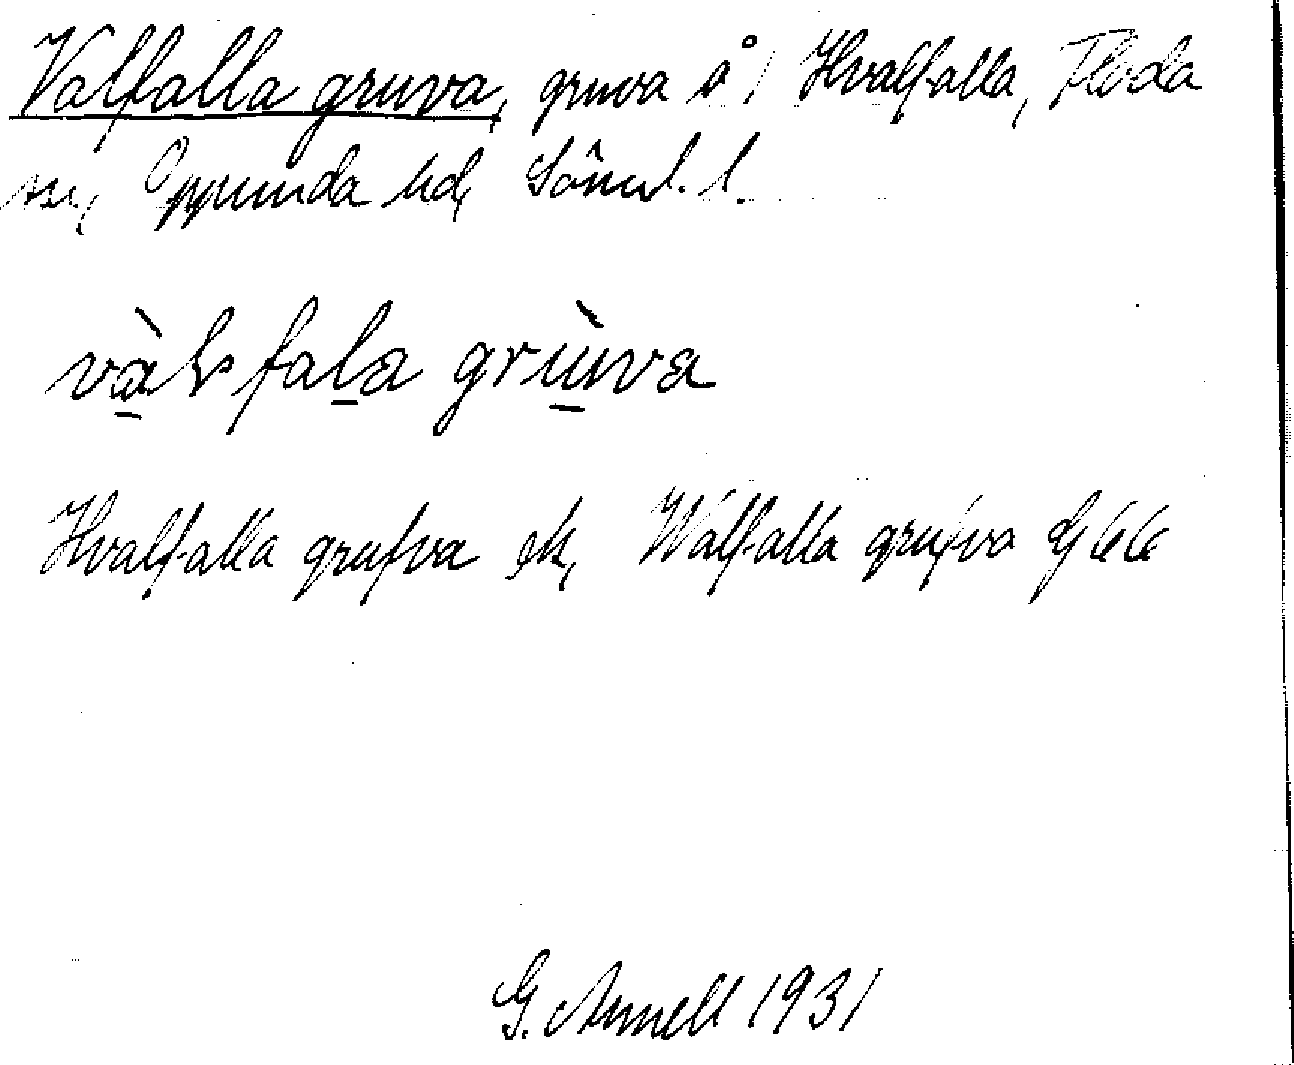 Valfalla gruva, gruva å 1 Hvalfalla, Floda
sn, Oppunda hd, Sörml. l.
vàlfala grùva
Hvalfalla grufva ek, Walfalla grufva Gf 66
G. Arnell 1931